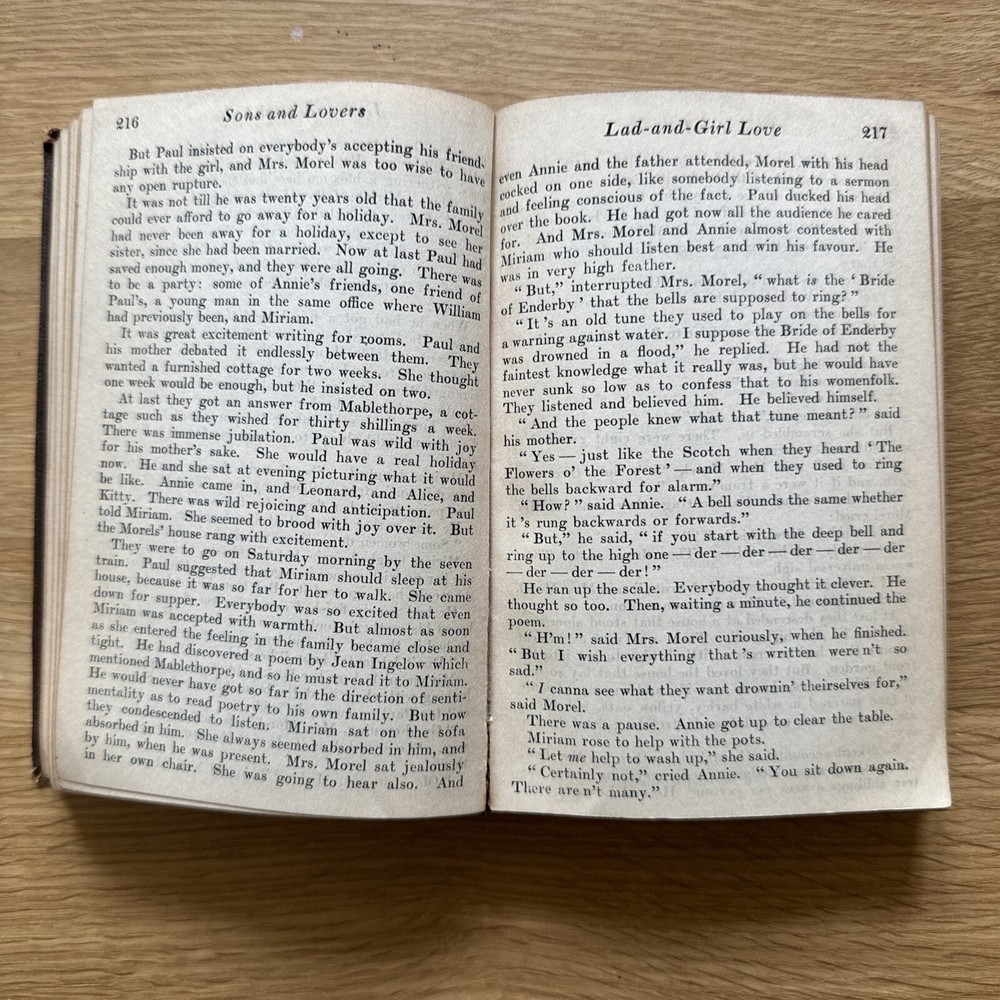 216
Sons and Lovers
But Paul insisted on everybody's accepting his friend-
ship with the girl, and Mrs. Morel was too wise to have
any open rupture.
It was not till he was twenty years old that the family
could ever afford to go away for a holiday. Mrs. Morel
had never been away for a holiday, except to see her
sister, since she had been married. Now at last Paul had
saved enough money, and they were all going. There was
to be a party: some of Annie's friends, one friend of
Paul's, a young man in the same office where William
had previously been, and Miriam.
It was great excitement writing for rooms. Paul and
his mother debated it endlessly between them. They
wanted a furnished cottage for two weeks. She thought
one week would be enough, but he insisted on two.
At last they got an answer from Mablethorpe, a cot-
tage such as they wished for thirty shillings a week.
There was immense jubilation. Paul was wild with joy
for his mother's sake. She would have a real holiday
now. He and she sat at evening picturing what it would
be like. Annie came in, and Leonard, and Alice, and
Kitty. There was wild rejoicing and anticipation. Paul
told Miriam. She seemed to brood with joy over it. But
the Morels' house rang with excitement.
They were to go on Saturday morning by the seven
train. Paul suggested that Miriam should sleep at his
house, because it was so far for her to walk. She came
down for supper. Everybody was so excited that even
Miriam was accepted with warmth. But almost as soon
as she entered the feeling in the family became close and
tight. He had discovered a poem by Jean Ingelow which
mentioned Mablethorpe, and so he must read it to Miriam.
He would never have got so far in the direction of senti-
mentality as to read poetry to his own family. But now
they condescended to listen. Miriam sat on the sofa
absorbed in him. She always seemed absorbed in him, and
by him, when he was present. Mrs. Morel sat jealously
in her own chair. She was going to hear also. And
Lad-and-Girl Love
217
even Annie and the father attended, Morel with his head
cocked on one side, like somebody listening to a sermon
and feeling conscious of the fact. Paul ducked his head
over the book. He had got now all the audience he cared
for. And Mrs. Morel and Annie almost contested with
Miriam who should listen best and win his favour. He
was in very high feather.
"But," interrupted Mrs. Morel, "what is the 'Bride
of Enderby' that the bells are supposed to ring?"
"It's an old tune they used to play on the bells for
a warning against water. I suppose the Bride of Enderby
was drowned in a flood," he replied. He had not the
faintest knowledge what it really was, but he would have
never sunk so low as to confess that to his womenfolk.
They listened and believed him. He believed himself.
"And the people knew what that tune meant?" said
his mother.
"Yes — just like the Scotch when they heard 'The
Flowers o' the Forest' — and when they used to ring
the bells backward for alarm."
"How?" said Annie. "A bell sounds the same whether
it's rung backwards or forwards."
"But," he said, "if you start with the deep bell and
ring up to the high one — der — der — der — der — der
— der — der — der!"
He ran up the scale. Everybody thought it clever. He
thought so too. Then, waiting a minute, he continued the
poem.
"H'm!" said Mrs. Morel curiously, when he finished.
"But I wish everything that's written were n't so
sad."
"I canna see what they want drownin' theirselves for,"
said Morel.
There was a pause. Annie got up to clear the table.
Miriam rose to help with the pots.
"Let me help to wash up," she said.
"Certainly not," cried Annie. "You sit down again.
There are n't many."